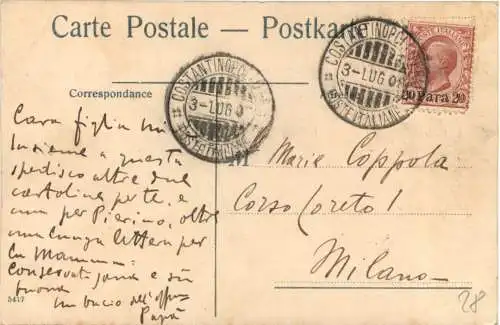 Carte Postale – Postkarte
COSTANTINOPOLI
3-LUG 0
POSTE ITALIANE
COSTANTINOPOLI
3-LUG 09
POSTE ITALIANE
POSTE ITALIANE
20 Para 20
Correspondance
Cara figlia mia
Insieme a questa
spedisco altre due
cartoline per te, e
una per Pierino, oltre
una lunga lettera per
la Mamma.
Conservati sana e sii
buona
Un bacio dell'affmo
Papà
Marie Coppola
Corso Loreto 1
Milano
5417
28